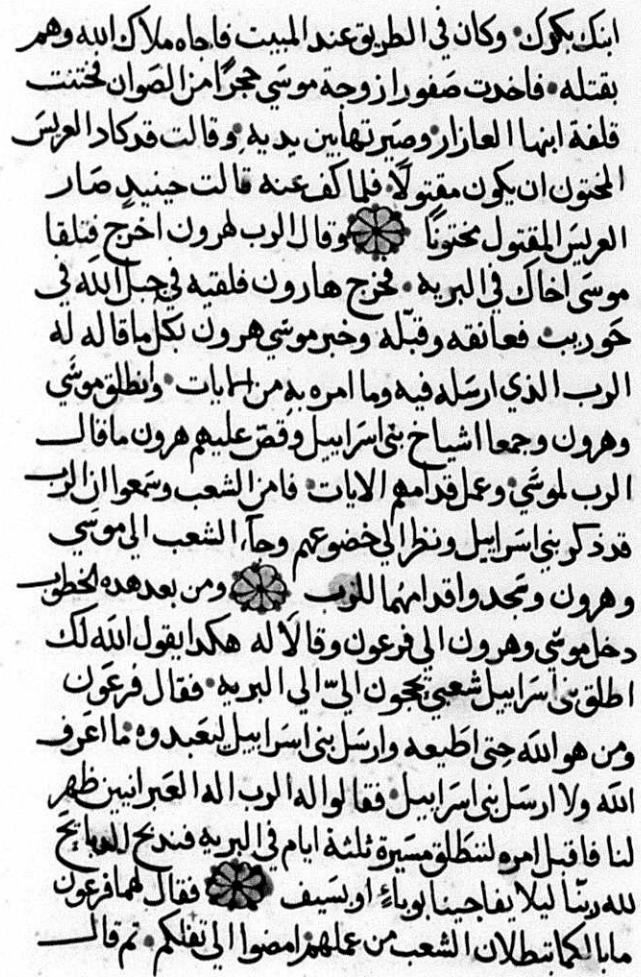 ابنك بكرك وكان في الطريق عند المبيت فاجاه ملاك الله وهم
بقتله فاخدت صفورا زوجة موسى حجرًا من الصوان فختنت
قلفة ابنها العازار وصيرتها بين يديه وقالت قد كاد العريس
المختون ان يكون مقتولًا فلما كف عنه قالت حينيدٍ صار
العريس المقتول مختونًا وقال الرب لهرون اخرج فتلقا
موسى اخاك في البريه فخرج هارون فلقيه في جبل الله في
حوريب فعانقه وقبّله وخبر موسى هرون بكل ما قاله له
الرب الذي ارسله فيه وما امره به من الايات وانطلق موسى
وهرون وجمعا اشياخ بني اسراييل وقصّ عليهم هرون ما قال
الرب لموسى وعمل قدامهم الايات فامن الشعب وسمعوا ان الرب
قد ذكر بني اسراييل ونظر الي خضوعهم وجآء الشعب الي موسى
وهرون وسجدوا قدامهما للرب ومن بعد هده الخطوب
دخل موسى وهرون الى فرعون وقالَا له هكدا يقول الله لك
اطلق بني اسراييل شعبي يحجون اليّ الي البريه فقال فرعون
ومن هو الله حتى اطيعه وارسل بني اسراييل ليعبدوه ما اعرف
الله ولا ارسل بني اسراييل فقالوا له الرب اله العبرانيين ظهر
لنا فاقبل امره لننطلق مسيرة ثلثة ايام في البريه فندبح الدبايح
لله ربّنا ليلا يفاجينا بوباءٍ او بسيف فقال لهما فرعون
ما بالكما تبطلان الشعب من عملهم امضوا الي ثقلكم تم قال